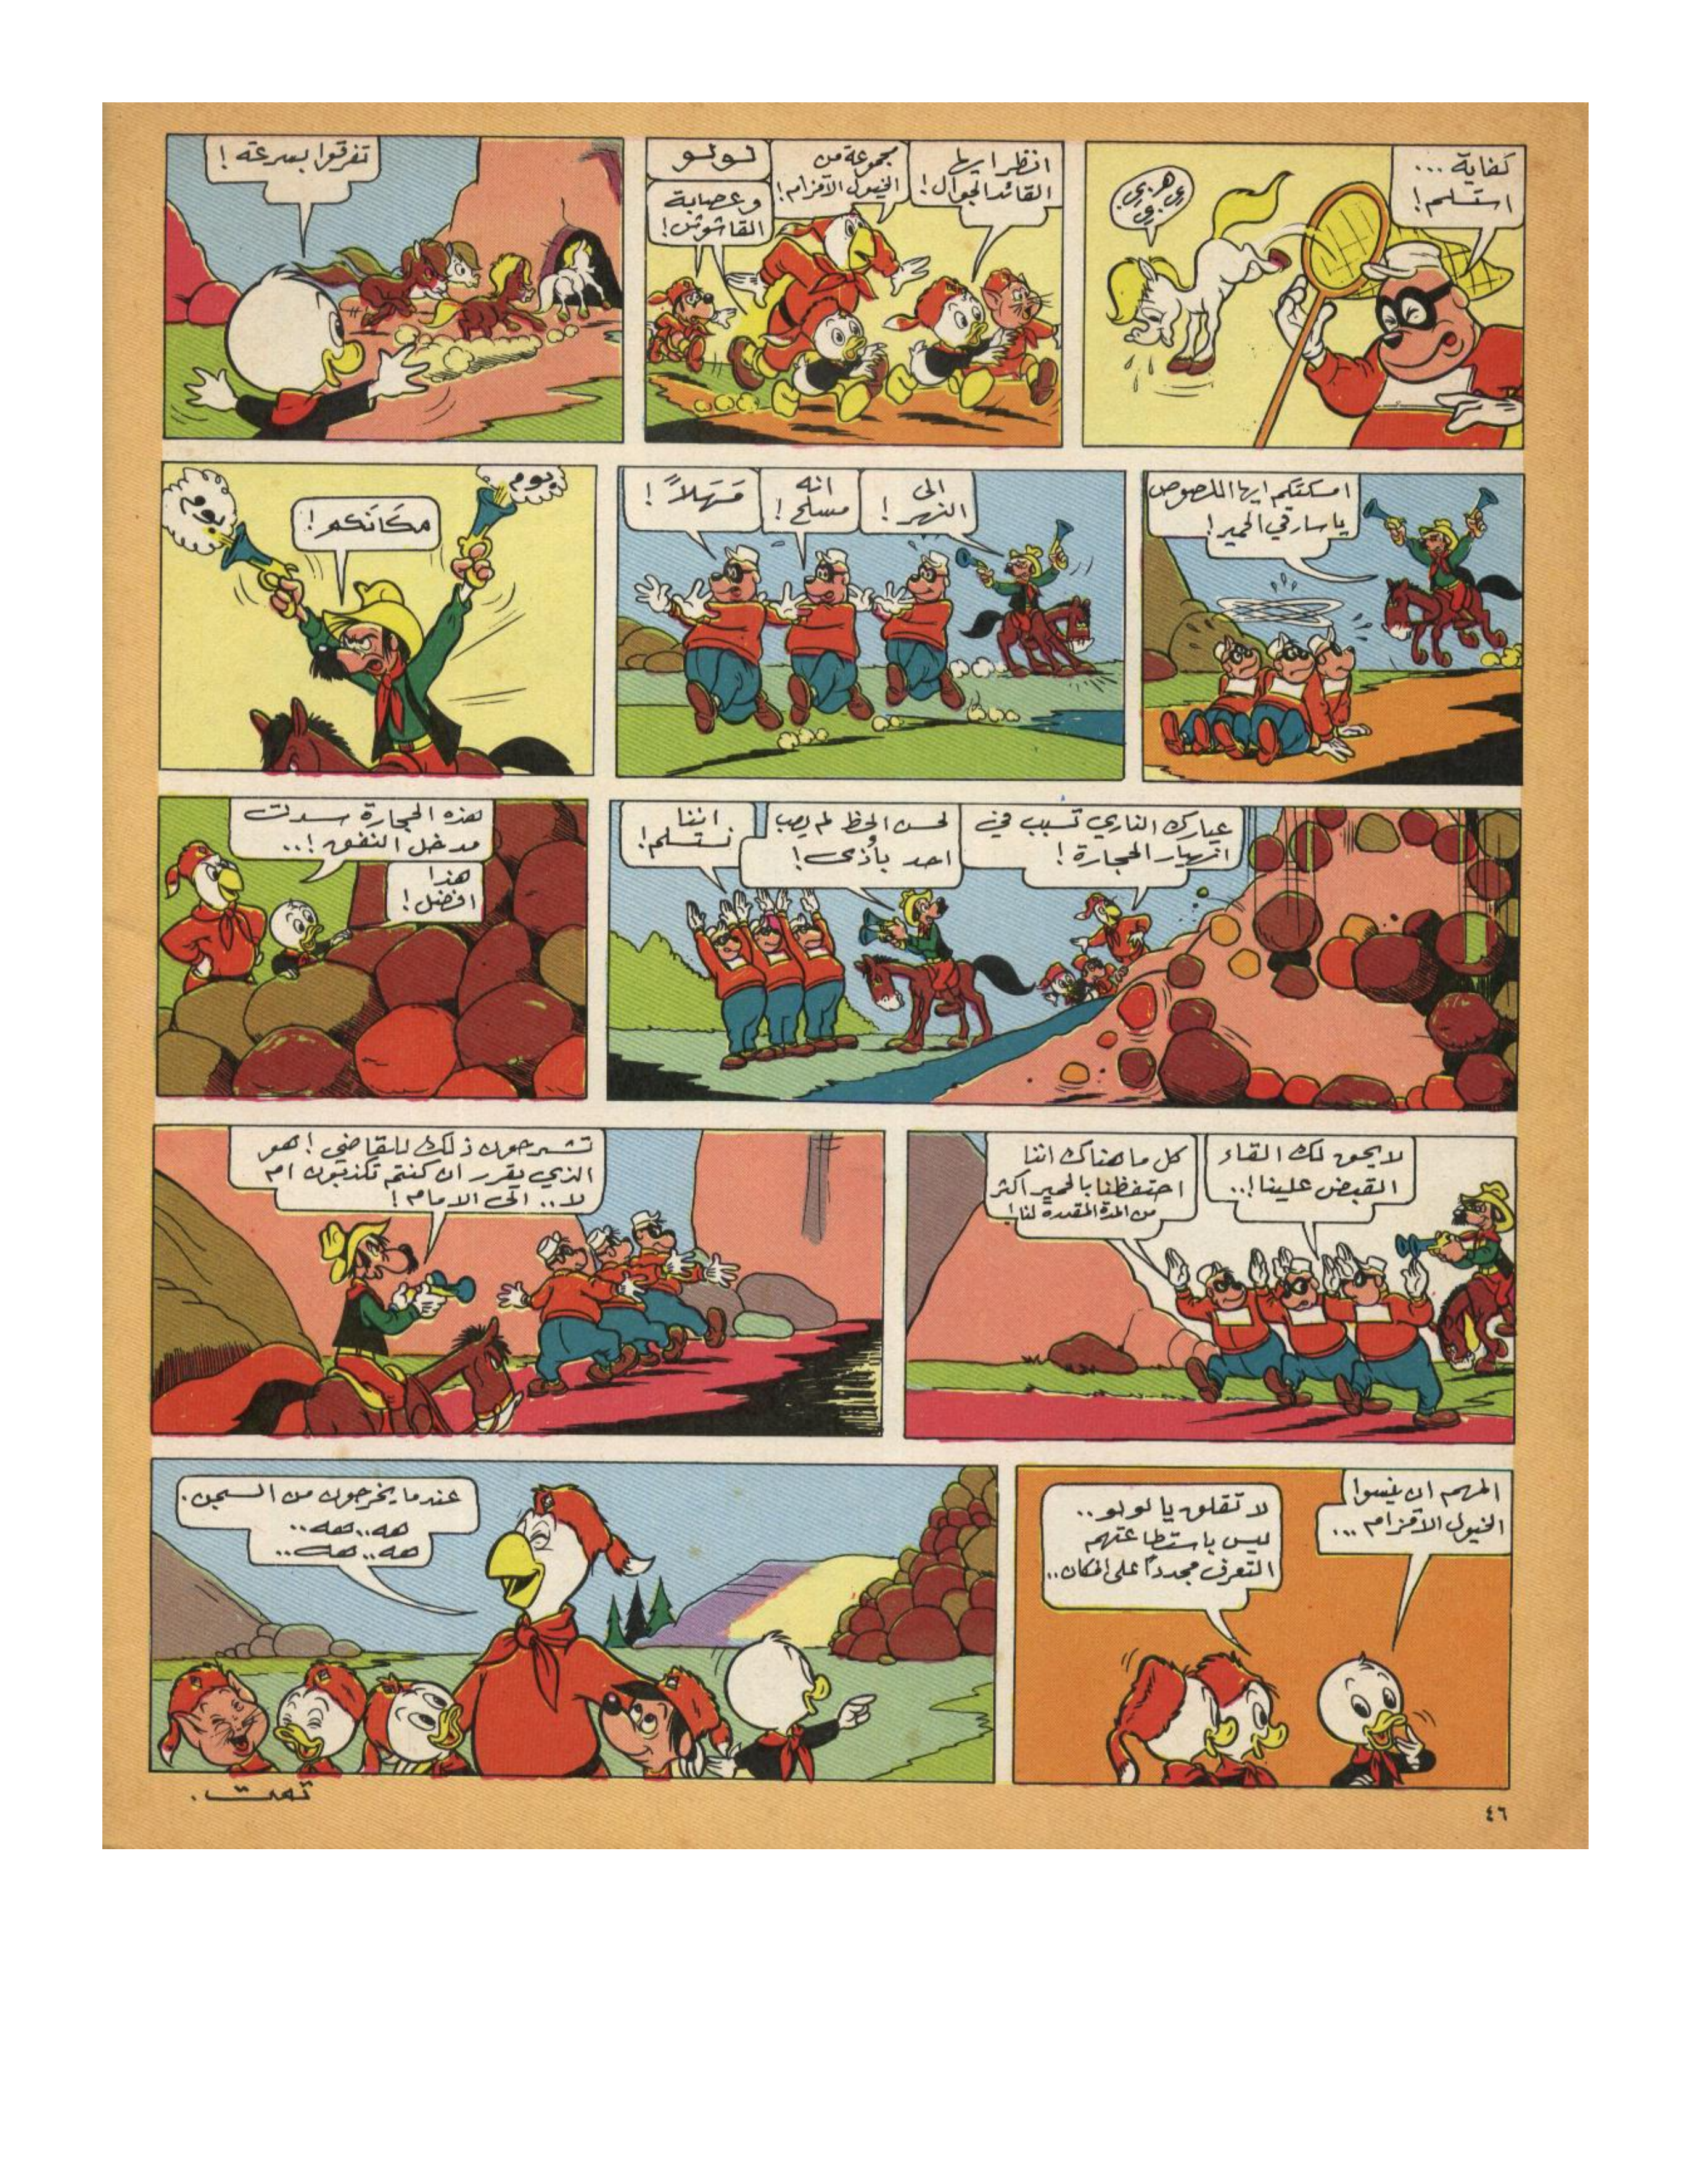 كفاية ...
استسلم!
انظر ايها
القائد الجوال!
مجموعة من
الخيول الاقزام!
لولو
وعصابة
القاشوش!
تفرقوا بسرعة!
امسكتكم ايها اللصوص
يا سارقي الحمير!
الى
النهر!
انه
مسلح!
مَهَلاً!
بوم
مكَانَكم!
بوم
عيارك الناري تسبب في
انهيار الحجارة!
لحسن الحظ لم يصب
احد بأذى!
اننا
نستسلم!
هذه الحجارة سدت
مدخل النفق!..
هذا
افضل!
لا يحق لك القاء
القبض علينا!..
كل ما هناك اننا
احتفظنا بالحمير اكثر
من المدة المقدرة لنا!
تشرحون ذلك للقاضي! هو
الذي يقرر ان كنتم تكذبون ام
لا.. الى الامام!
المهم ان ينسوا
الخيول الاقزام ...
لا تقلق يا لولو..
ليس باستطاعتهم
التعرف مجدداً على المكان..
عندما يخرجون من السجن.
هه..هه..
هه..هه..
تمت.
٤٦